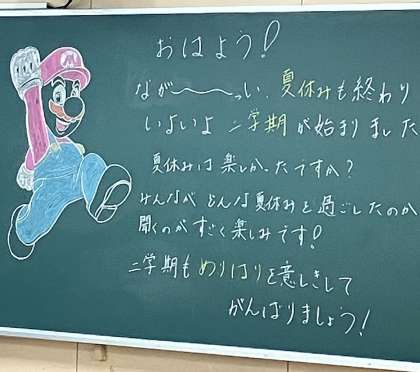 おはよう!
なが〜〜っい 夏休みも終わり
いよいよ 二学期が始まりました
夏休みは楽しかったですか?
みんなが どんな夏休みを過ごしたのか
聞くのがすごく楽しみです!
二学期も めりはりを意しきして
がんばりましょう!
M